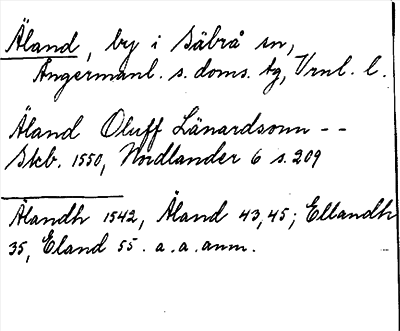 Äland, by i Säbrå sn,
Ångermanl. s. doms. tg, Vrnl. l.
Äland Oluff Länardsonn - -
Skb. 1550, Nordlander 6 s. 209
Älandh 1542, Åland 43, 45; Ellandh
35, Eland 55. a. a. anm.